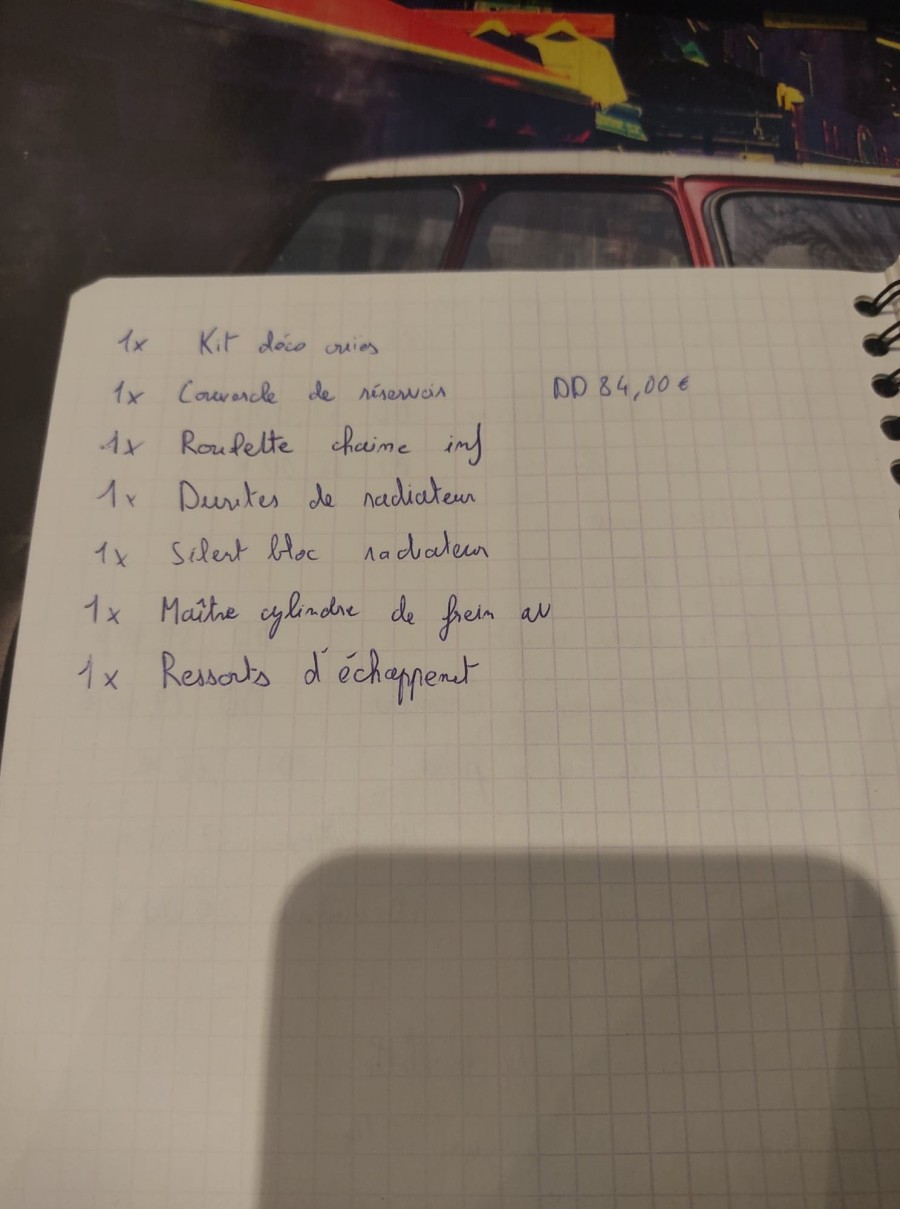 1x Kit déco ovies
1x Couvercle de réservoir DD 84,00 €
1x Roulette chaine inf
1x Durites de radiateur
1x Silent bloc radiateur
1x Maître cylindre de frein av
1x Ressorts d'échappent